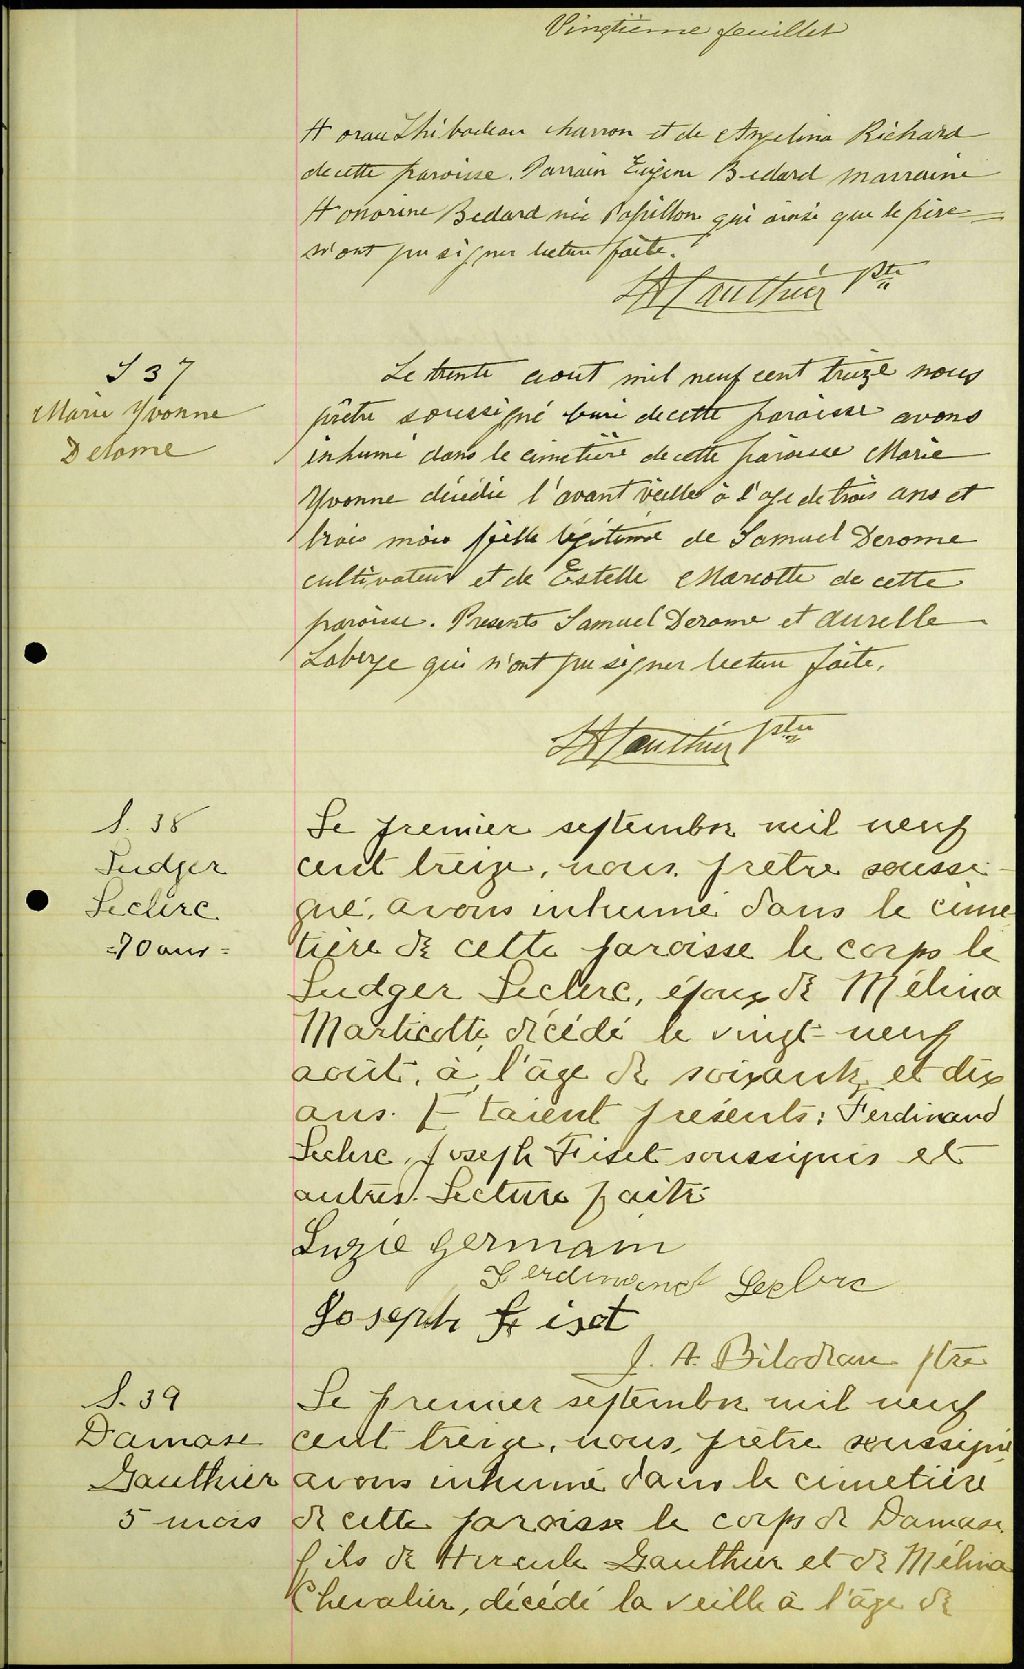 Vingtième feuillet
Horau Thibodeau charron et de Angelina Richard
de cette paroisse. Parrain Eugène Bedard marraine
Honorine Bedard née Papillon qui ainsi que le père
n'ont pu signer lecture faite.
Gauthier Ptre
S 37
Marie Yvonne
Derome
Le trente aout mil neuf cent treize nous
prêtre soussigné curé de cette paroisse avons
inhumé dans le cimetière de cette paroisse Marie
Yvonne décédée l'avant veille à l'age de trois ans et
trois mois fille légitime de Samuel Derome
cultivateur et de Estelle Marcotte de cette
paroisse. Presents Samuel Derome et Aurelle
Laberge qui n'ont pu signer lecture faite.
Gauthier ptre
S. 38
Ludger
Leclerc
=70 ans=
Le premier septembre mil neuf
cent treize, nous, prêtre soussi-
gné, avons inhumé dans le cime
tière de cette paroisse le corps le
Ludger Leclerc, époux de Mélina
Marticotte, décédé le vingt-neuf
août, à l'âge de soixante et dix
ans. Etaient présents: Ferdinand
Leclerc, Joseph Fiset soussignés et
autres. Lecture faite.
Luzie Germain
Ferdinand Leclerc
Joseph Fiset
J. A. Bilodeau ptre
S. 39
Damase
Gauthier
5 mois
Le premier septembre mil neuf
cent treize, nous, prêtre soussigné,
avons inhumé dans le cimetière
de cette paroisse le corps de Damase
fils de Hercule Gauthier et de Mélina
Chevalier, décédé la veille à l'âge de